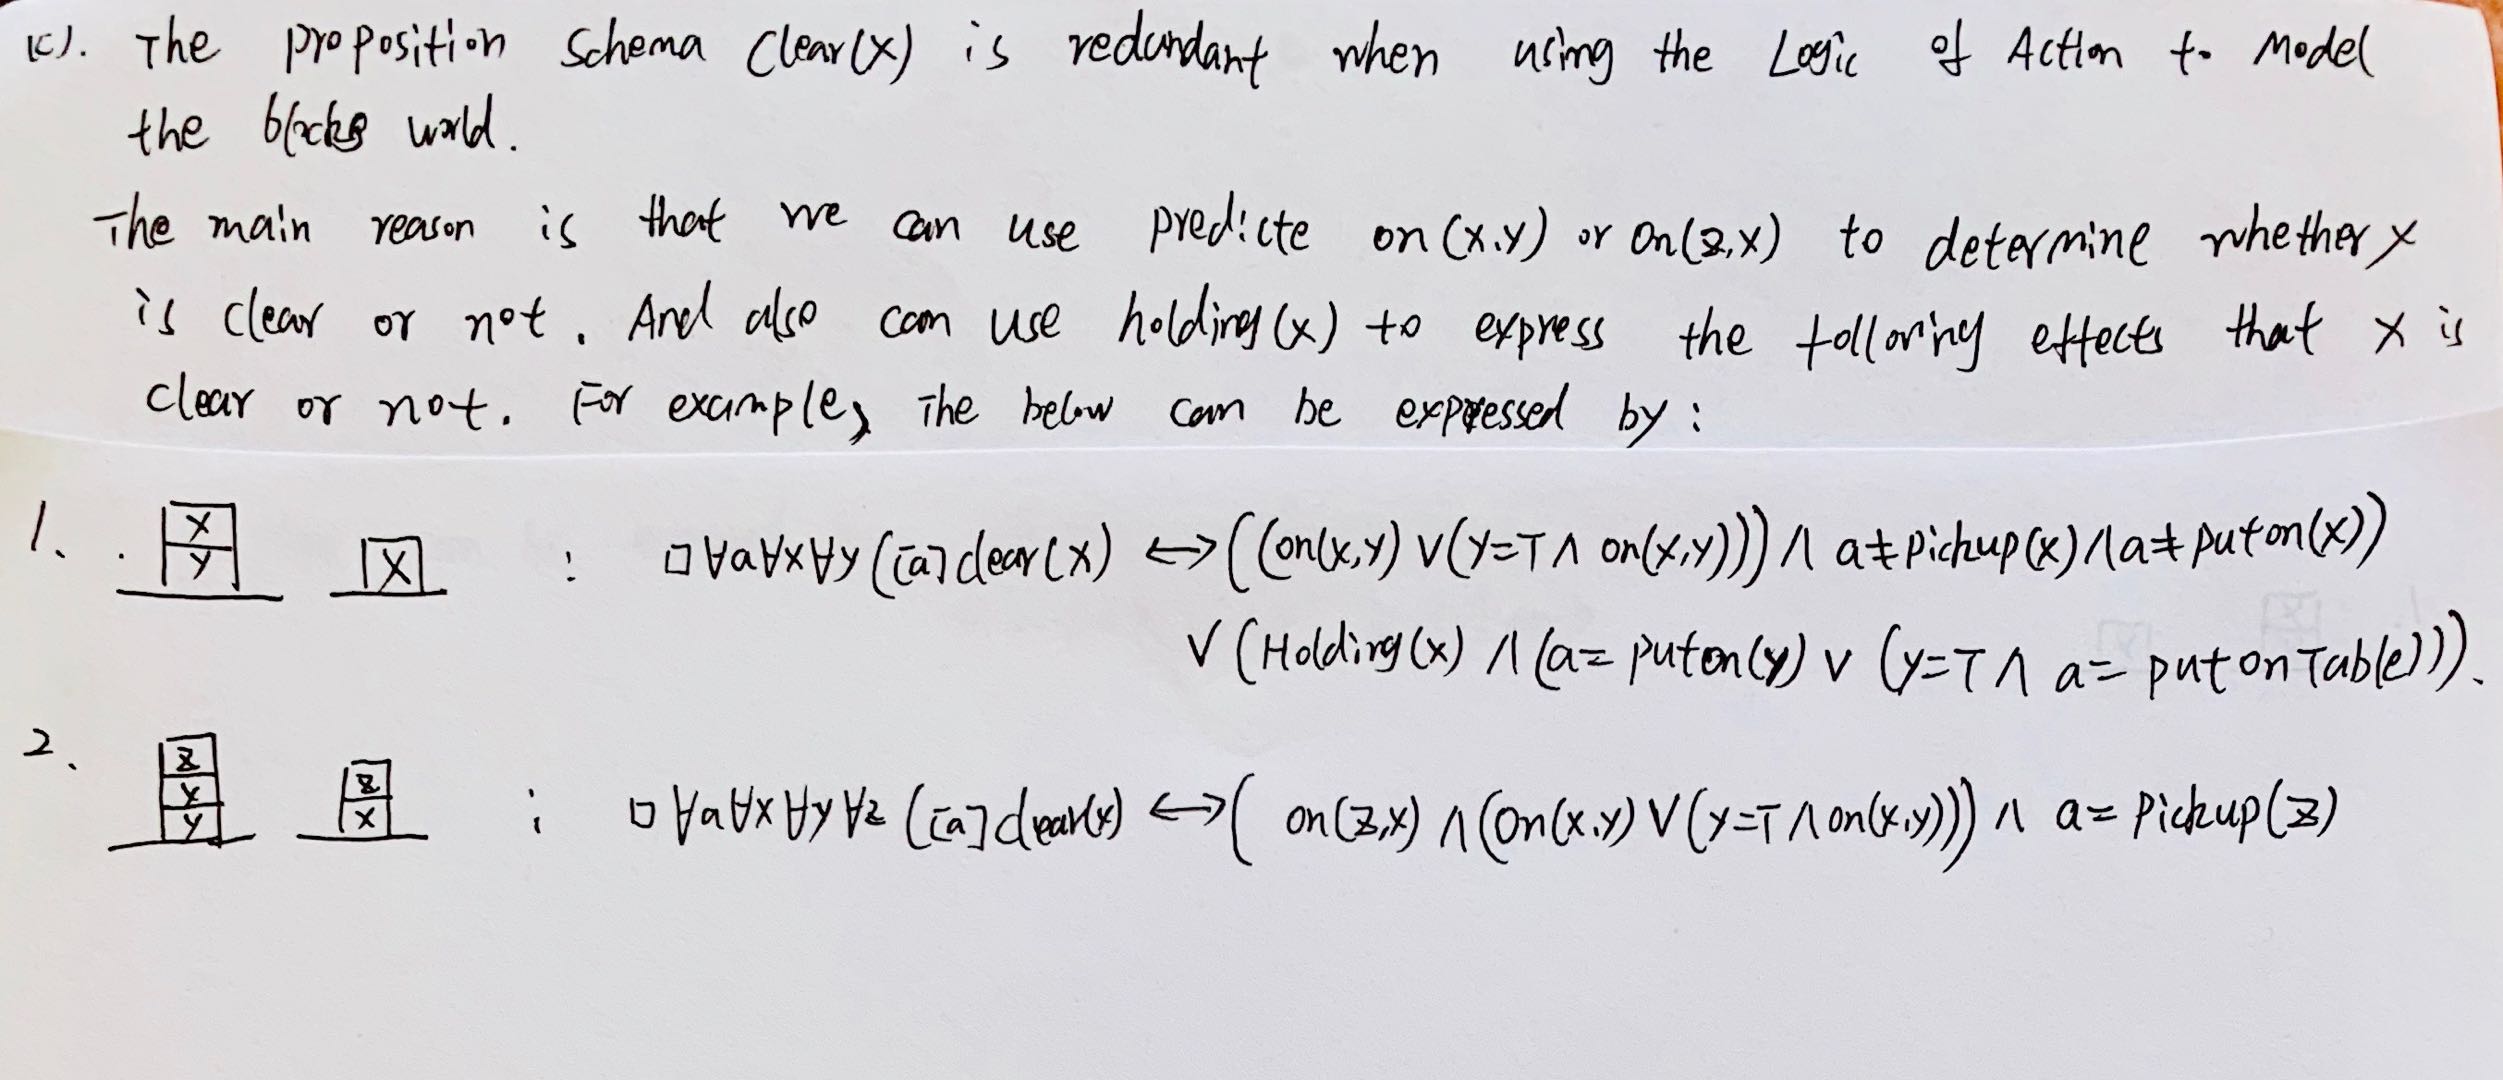 (c). The proposition schema Clear(x) is redundant when using the Logic of Action to Model
the blocks world.
The main reason is that we can use predicte on(x,y) or on(z,x) to determine whether x
is clear or not. And also can use holding(x) to express the following effects that x is
clear or not. For example, The below can be expressed by:
1. x y x : □∀a∀x∀y([a]clear(x) ↔ ((on(x,y) ∨ (y=T ∧ on(x,y))) ∧ a≠pickup(x) ∧ a≠puton(x))
∨ (Holding(x) ∧ (a=puton(y) ∨ (y=T ∧ a=putonTable))).
2. z x y z x : □∀a∀x∀y∀z([a]clear(x) ↔ (on(z,x) ∧ (on(x,y) ∨ (y=T ∧ on(x,y))) ∧ a=Pickup(z)